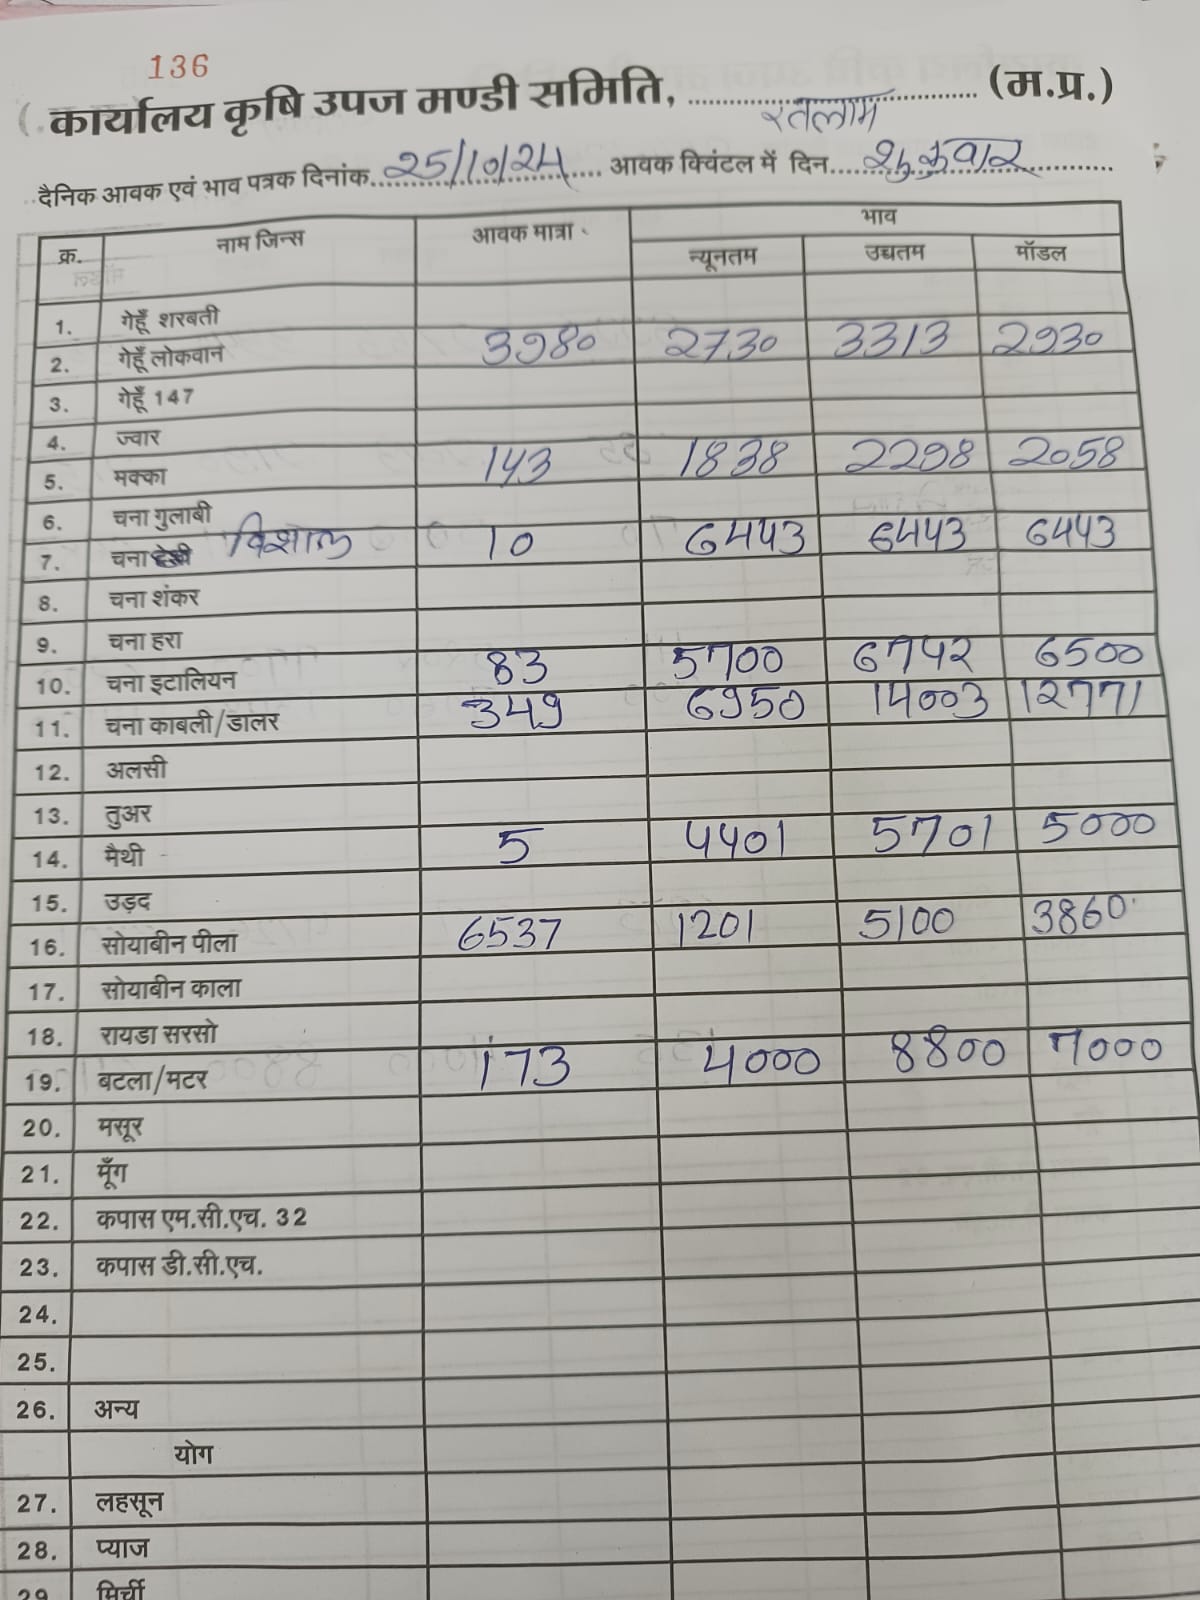 136
कार्यालय कृषि उपज मण्डी समिति, रतलाम (म.प्र.)
दैनिक आवक एवं भाव पत्रक दिनांक 25/10/24 आवक क्विंटल में दिन शुक्रवार
क्र. नाम जिन्स आवक मात्रा भाव
न्यूनतम उच्चतम मॉडल
1. गेहूँ शरबती
2. गेहूँ लोकवान 3980 2730 3313 2930
3. गेहूँ 147
4. ज्वार
5. मक्का 143 1838 2298 2058
6. चना गुलाबी
7. चना विशाल 10 6443 6443 6443
8. चना शंकर
9. चना हरा
10. चना इटालियन 83 5700 6742 6500
11. चना काबली/डालर 349 6950 14003 12771
12. अलसी
13. तुअर
14. मैथी 5 4401 5701 5000
15. उड़द
16. सोयाबीन पीला 6537 1201 5100 3860
17. सोयाबीन काला
18. रायडा सरसो
19. बटला/मटर 173 4000 8800 7000
20. मसूर
21. मूँग
22. कपास एम.सी.एच. 32
23. कपास डी.सी.एच.
24.
25.
26. अन्य
योग
27. लहसून
28. प्याज
29 मिर्ची